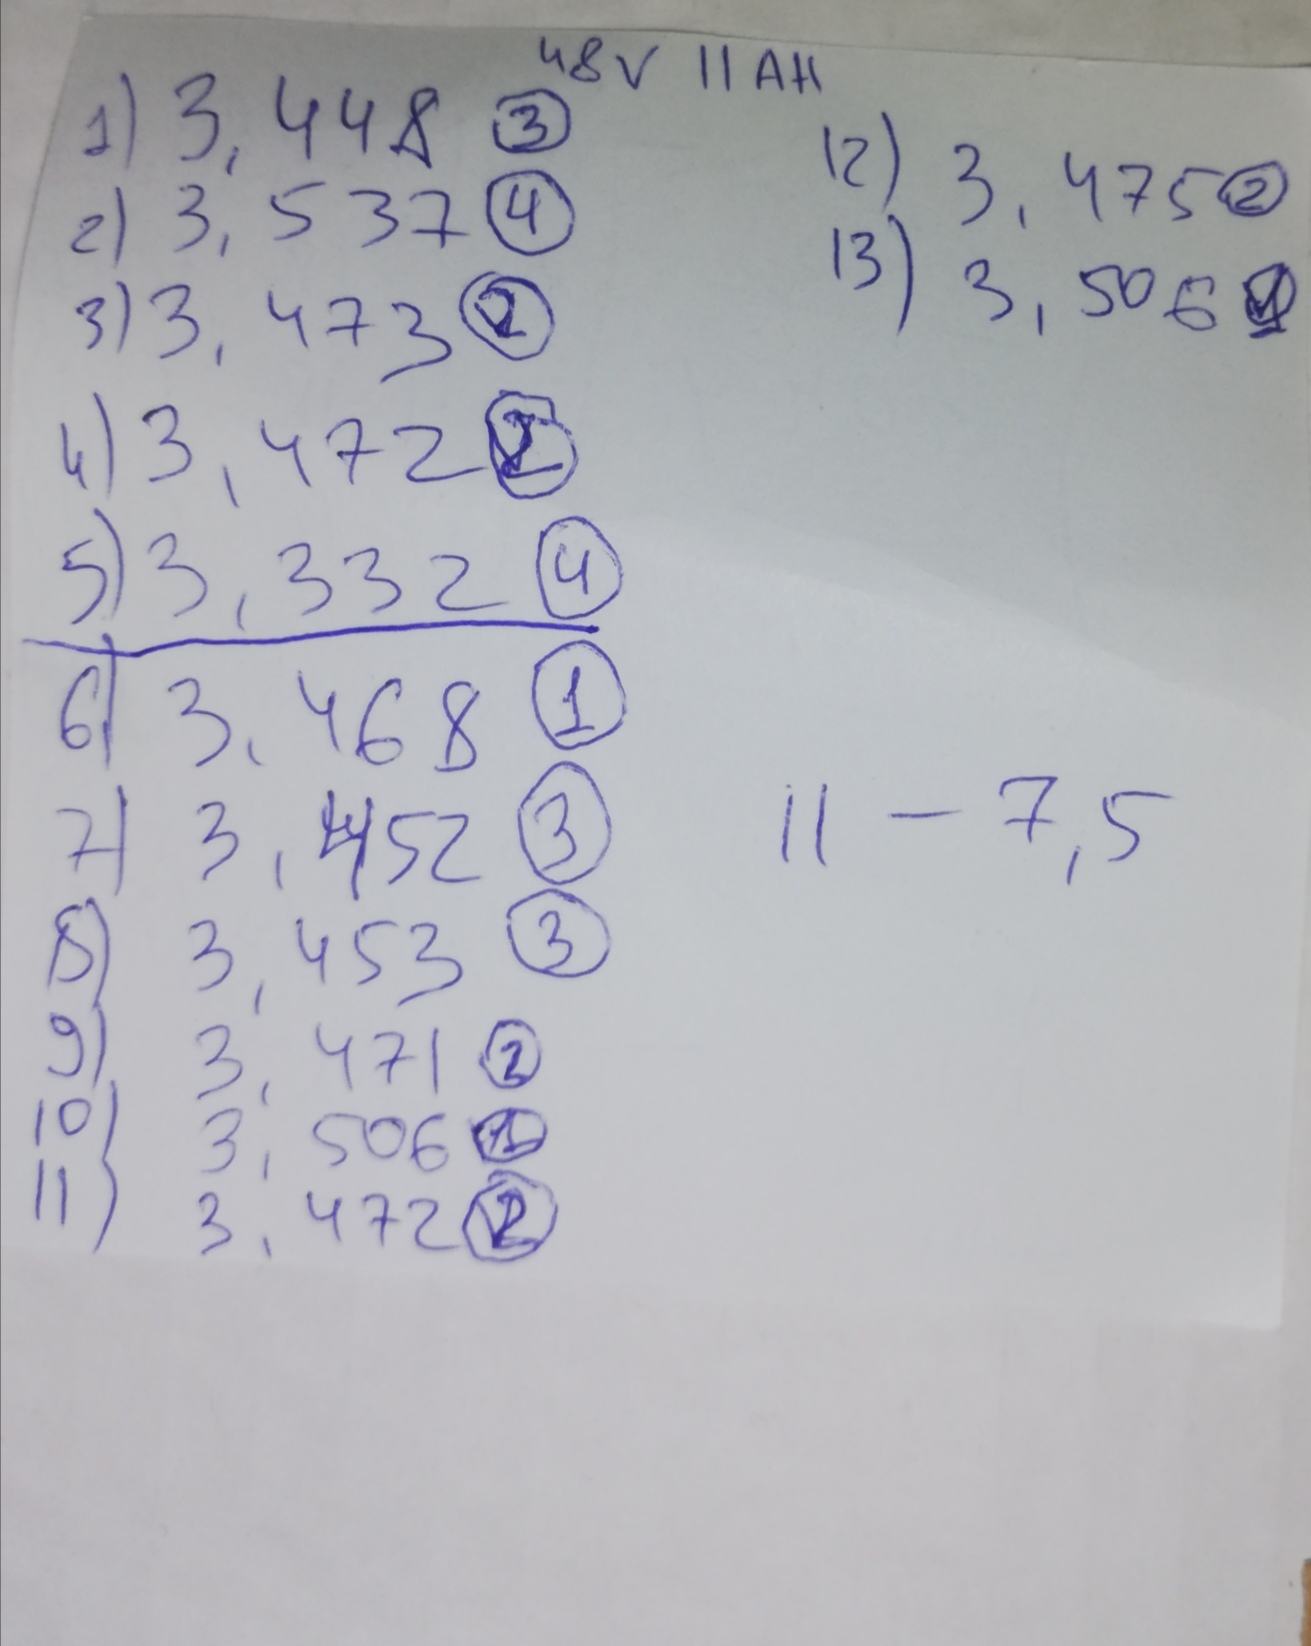 48V 11AH
1) 3,448 3
2) 3,537 4
3) 3,473 2
4) 3,472 2
5) 3,332 4
6) 3,468 1
7) 3,452 3
8) 3,453 3
9) 3,471 2
10) 3,506 1
11) 3,472 2
12) 3,475 2
13) 3,506 1
11 — 7,5